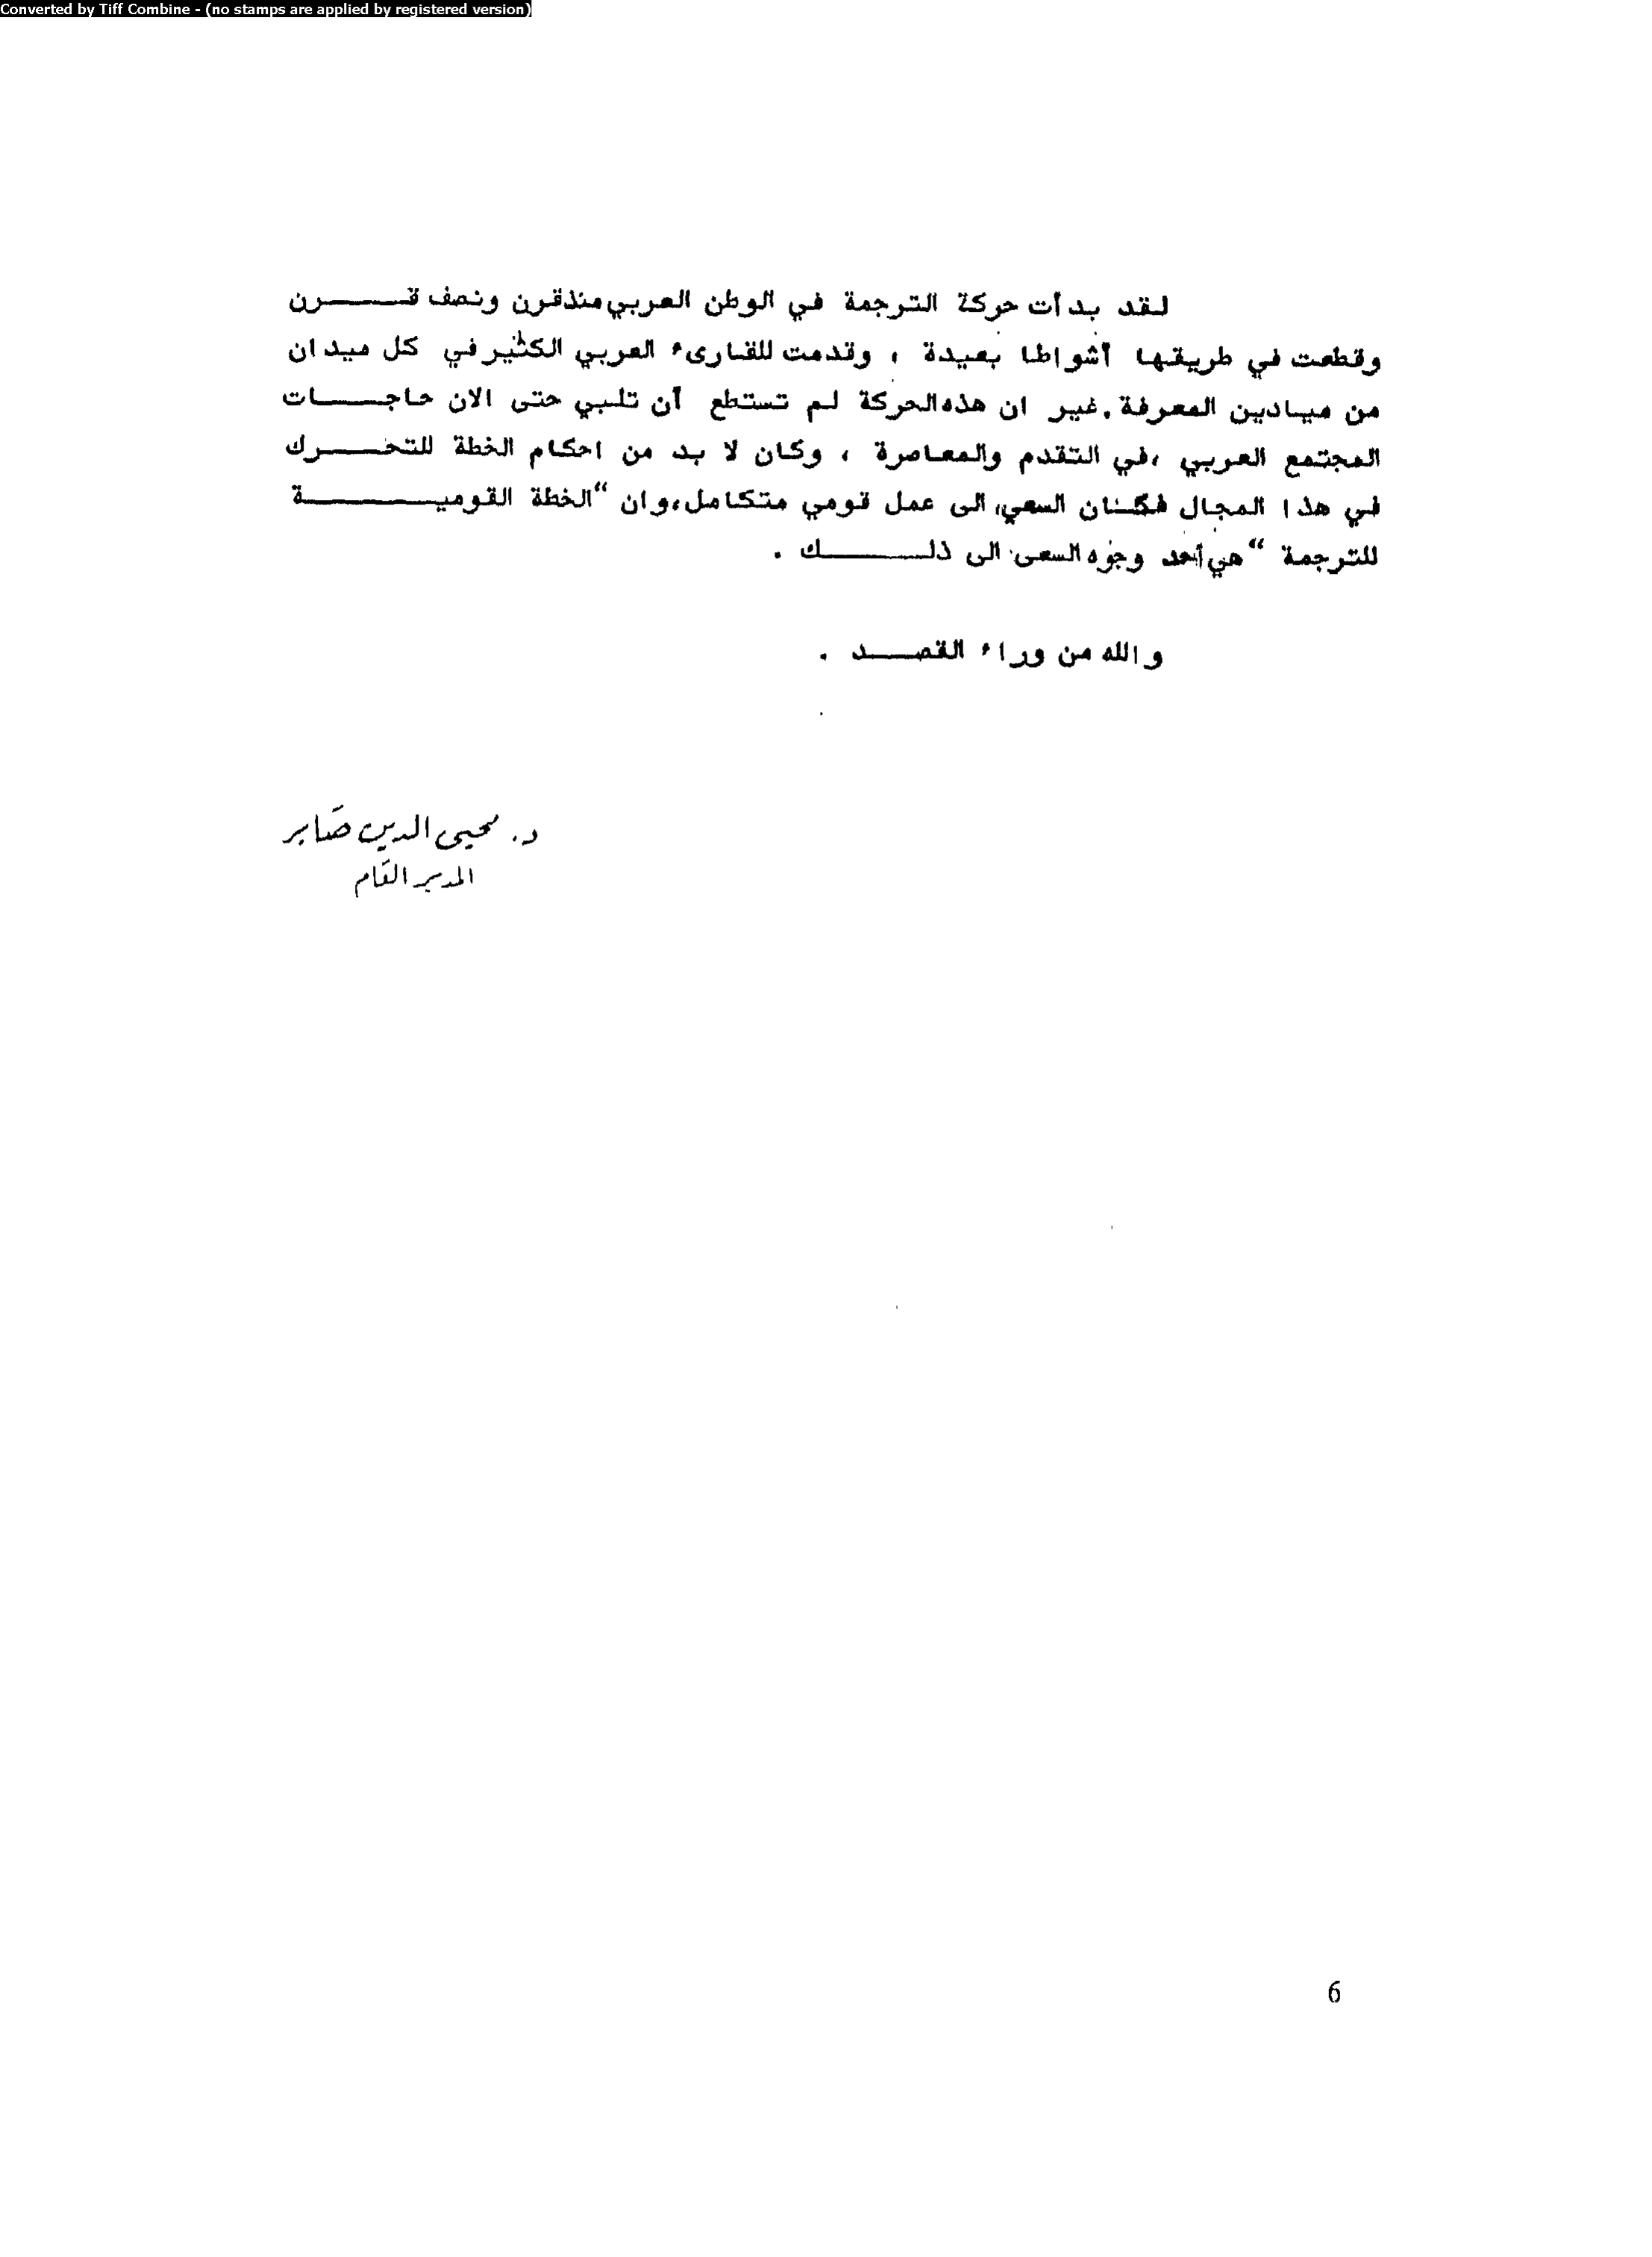 Converted by Tiff Combine - (no stamps are applied by registered version)
لقد بدأت حركة الترجمة في الوطن العربي منذ قرن ونصف قـــــرن
وقطعت في طريقها أشواطا بعيدة ، وقدمت للقارىء العربي الكثير في كل ميدان
من ميادين المعرفة . غير ان هذه الحركة لم تستطع أن تلبي حتى الان حاجــــات
المجتمع العربي ، في التقدم والمعاصرة ، وكان لا بد من احكام الخطة للتحــــرك
في هذا المجال فكان السعي الى عمل قومي متكامل ، وان "الخطة القوميـــــــة
للترجمة " هي أحد وجوه السعى الى ذلــــــــك .
والله من وراء القصــــد .
د. محيي الدين صَابر
المدير العَام
6